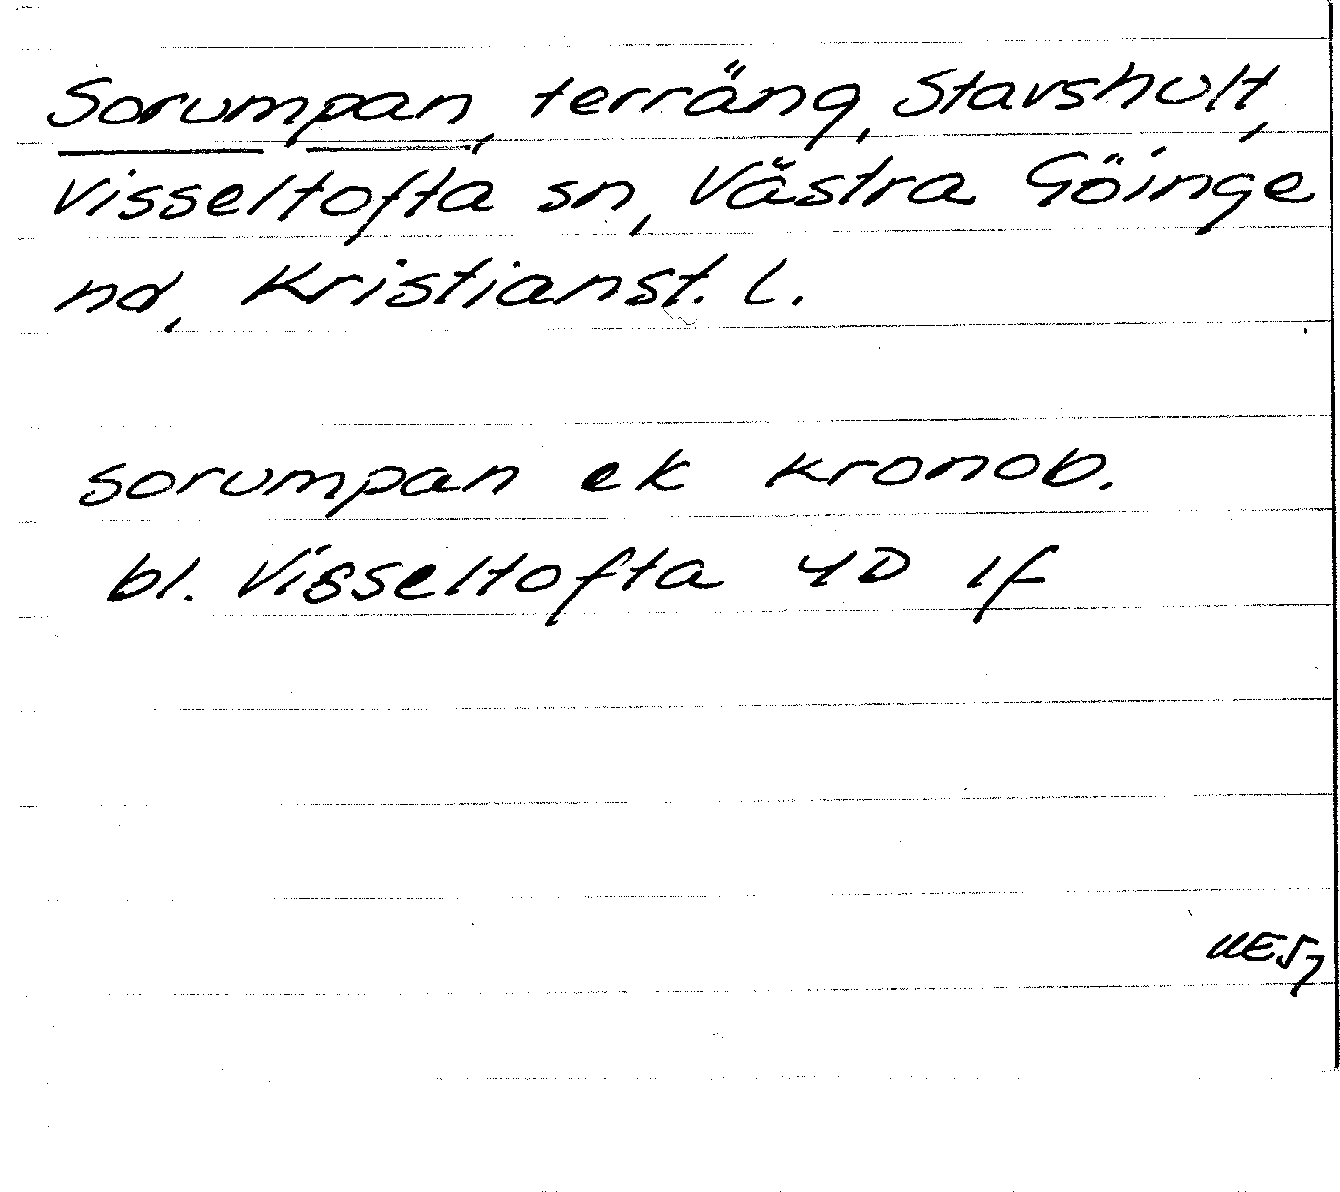 Sorumpan, terräng, Stavshult,
Visseltofta sn, Västra Göinge
hd, Kristianst. l.
sorumpan ek kronob.
bl. Visseltofta 4D 1f